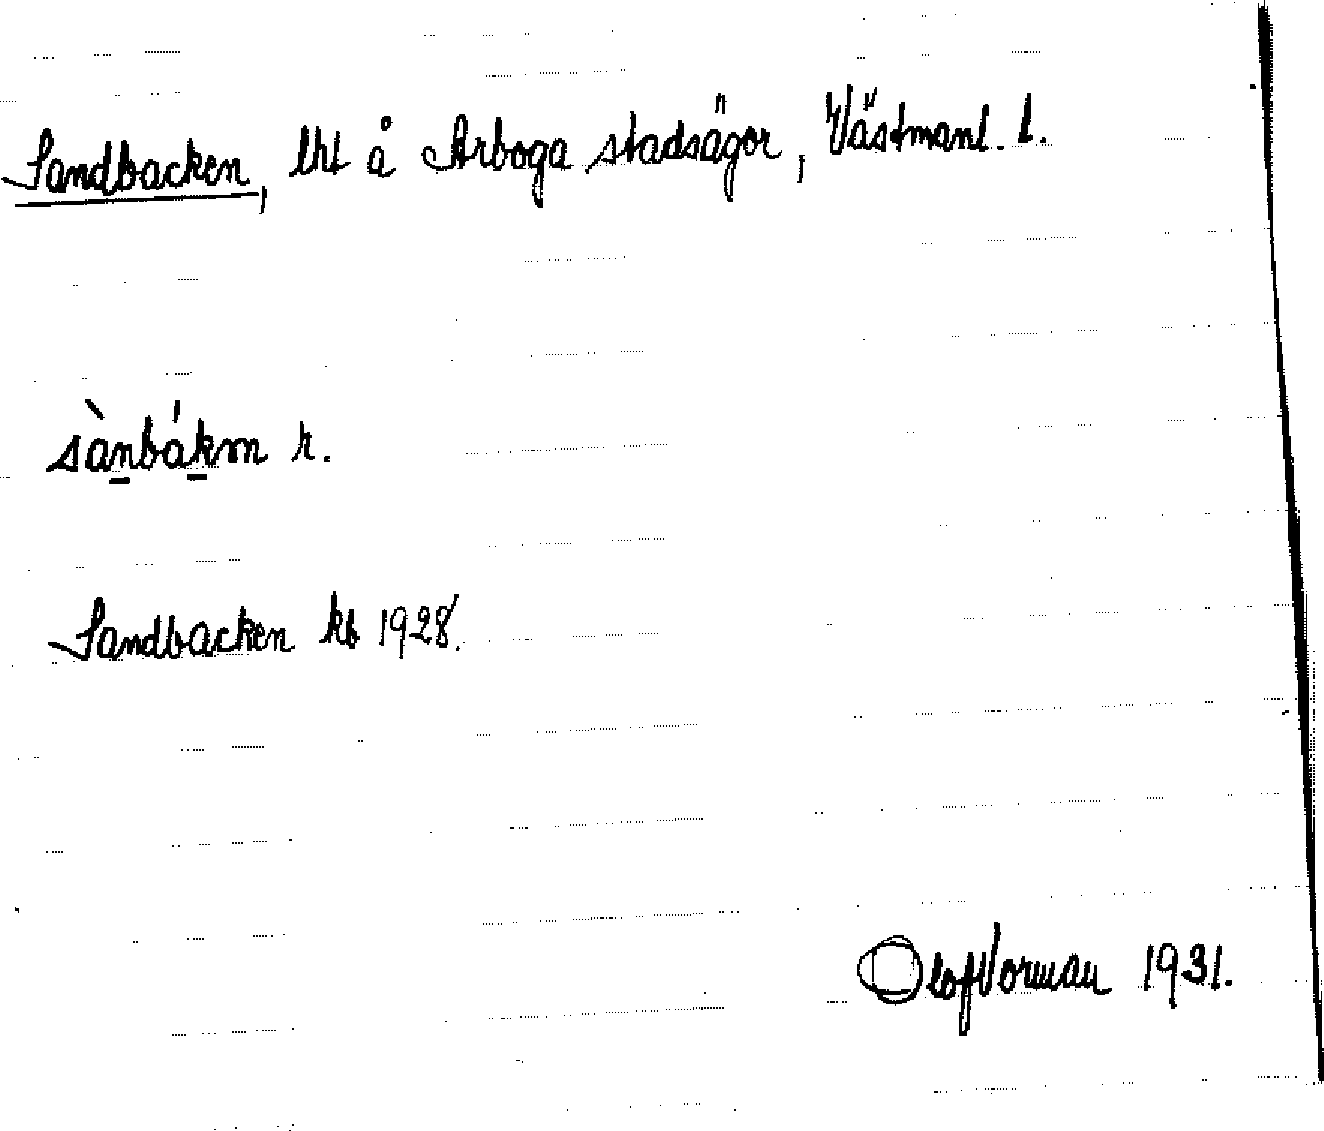 Sandbacken, lht å Arboga stadsägor, Västmanl. l.
sànbákm r.
Sandbacken kb 1928.
Olof Norman 1931.